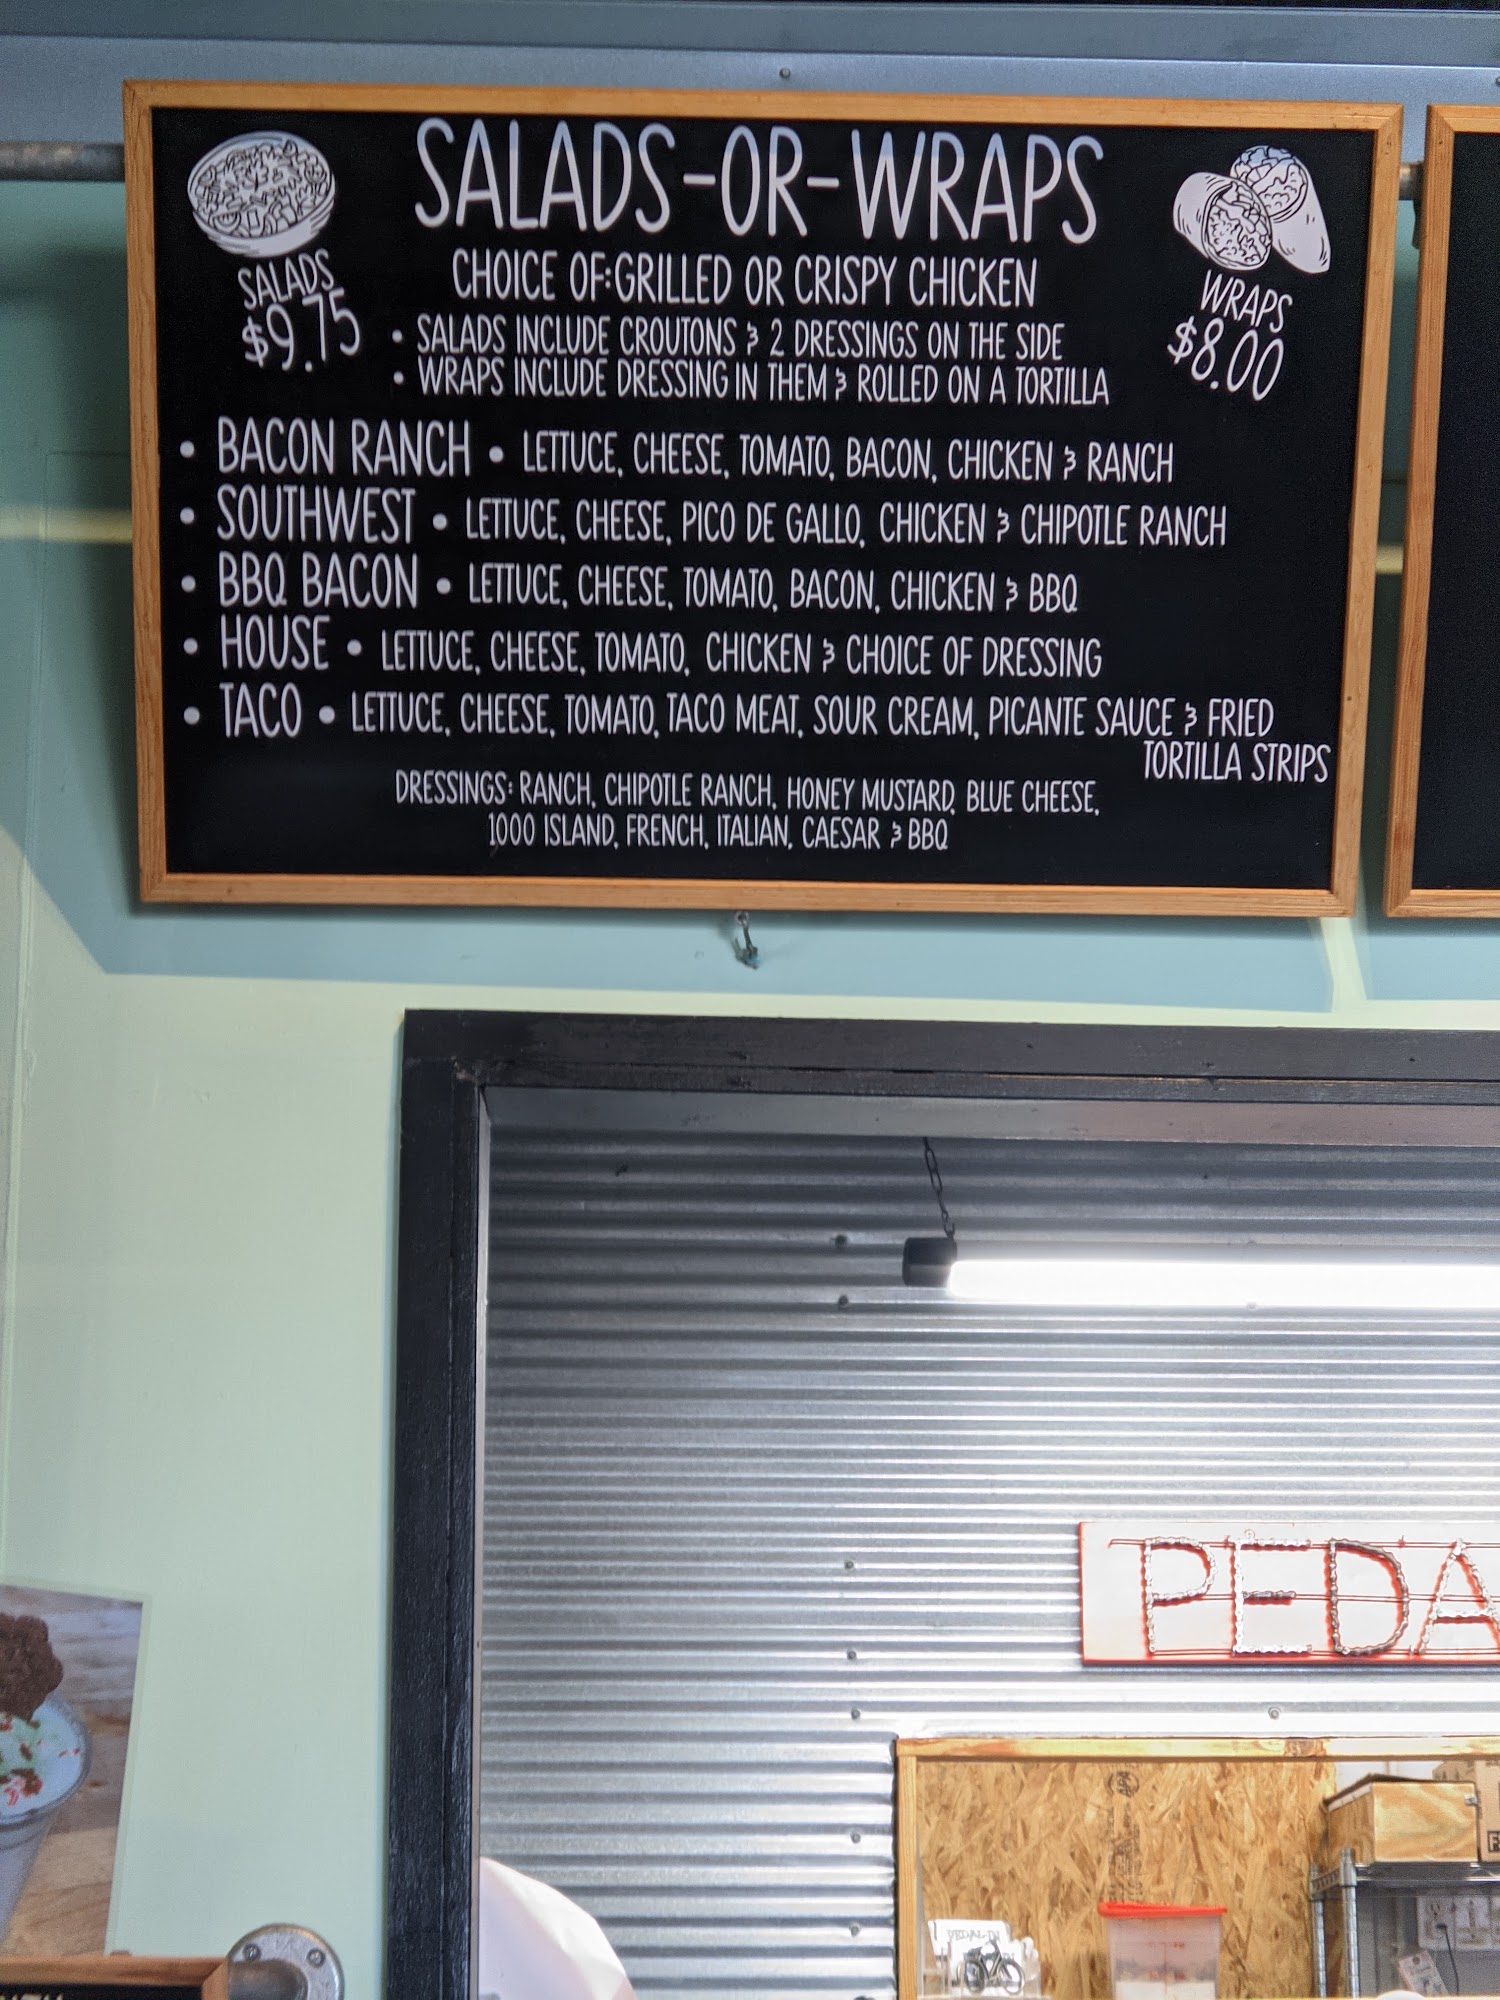 SALADS-OR-WRAPS
SALADS
$9.75
WRAPS
$8.00
CHOICE OF: GRILLED OR CRISPY CHICKEN
• SALADS INCLUDE CROUTONS & 2 DRESSINGS ON THE SIDE
• WRAPS INCLUDE DRESSING IN THEM & ROLLED ON A TORTILLA
• BACON RANCH • LETTUCE, CHEESE, TOMATO, BACON, CHICKEN & RANCH
• SOUTHWEST • LETTUCE, CHEESE, PICO DE GALLO, CHICKEN & CHIPOTLE RANCH
• BBQ BACON • LETTUCE, CHEESE, TOMATO, BACON, CHICKEN & BBQ
• HOUSE • LETTUCE, CHEESE, TOMATO, CHICKEN & CHOICE OF DRESSING
• TACO • LETTUCE, CHEESE, TOMATO, TACO MEAT, SOUR CREAM, PICANTE SAUCE & FRIED
TORTILLA STRIPS
DRESSINGS: RANCH, CHIPOTLE RANCH, HONEY MUSTARD, BLUE CHEESE,
1000 ISLAND, FRENCH, ITALIAN, CAESAR & BBQ
PEDA